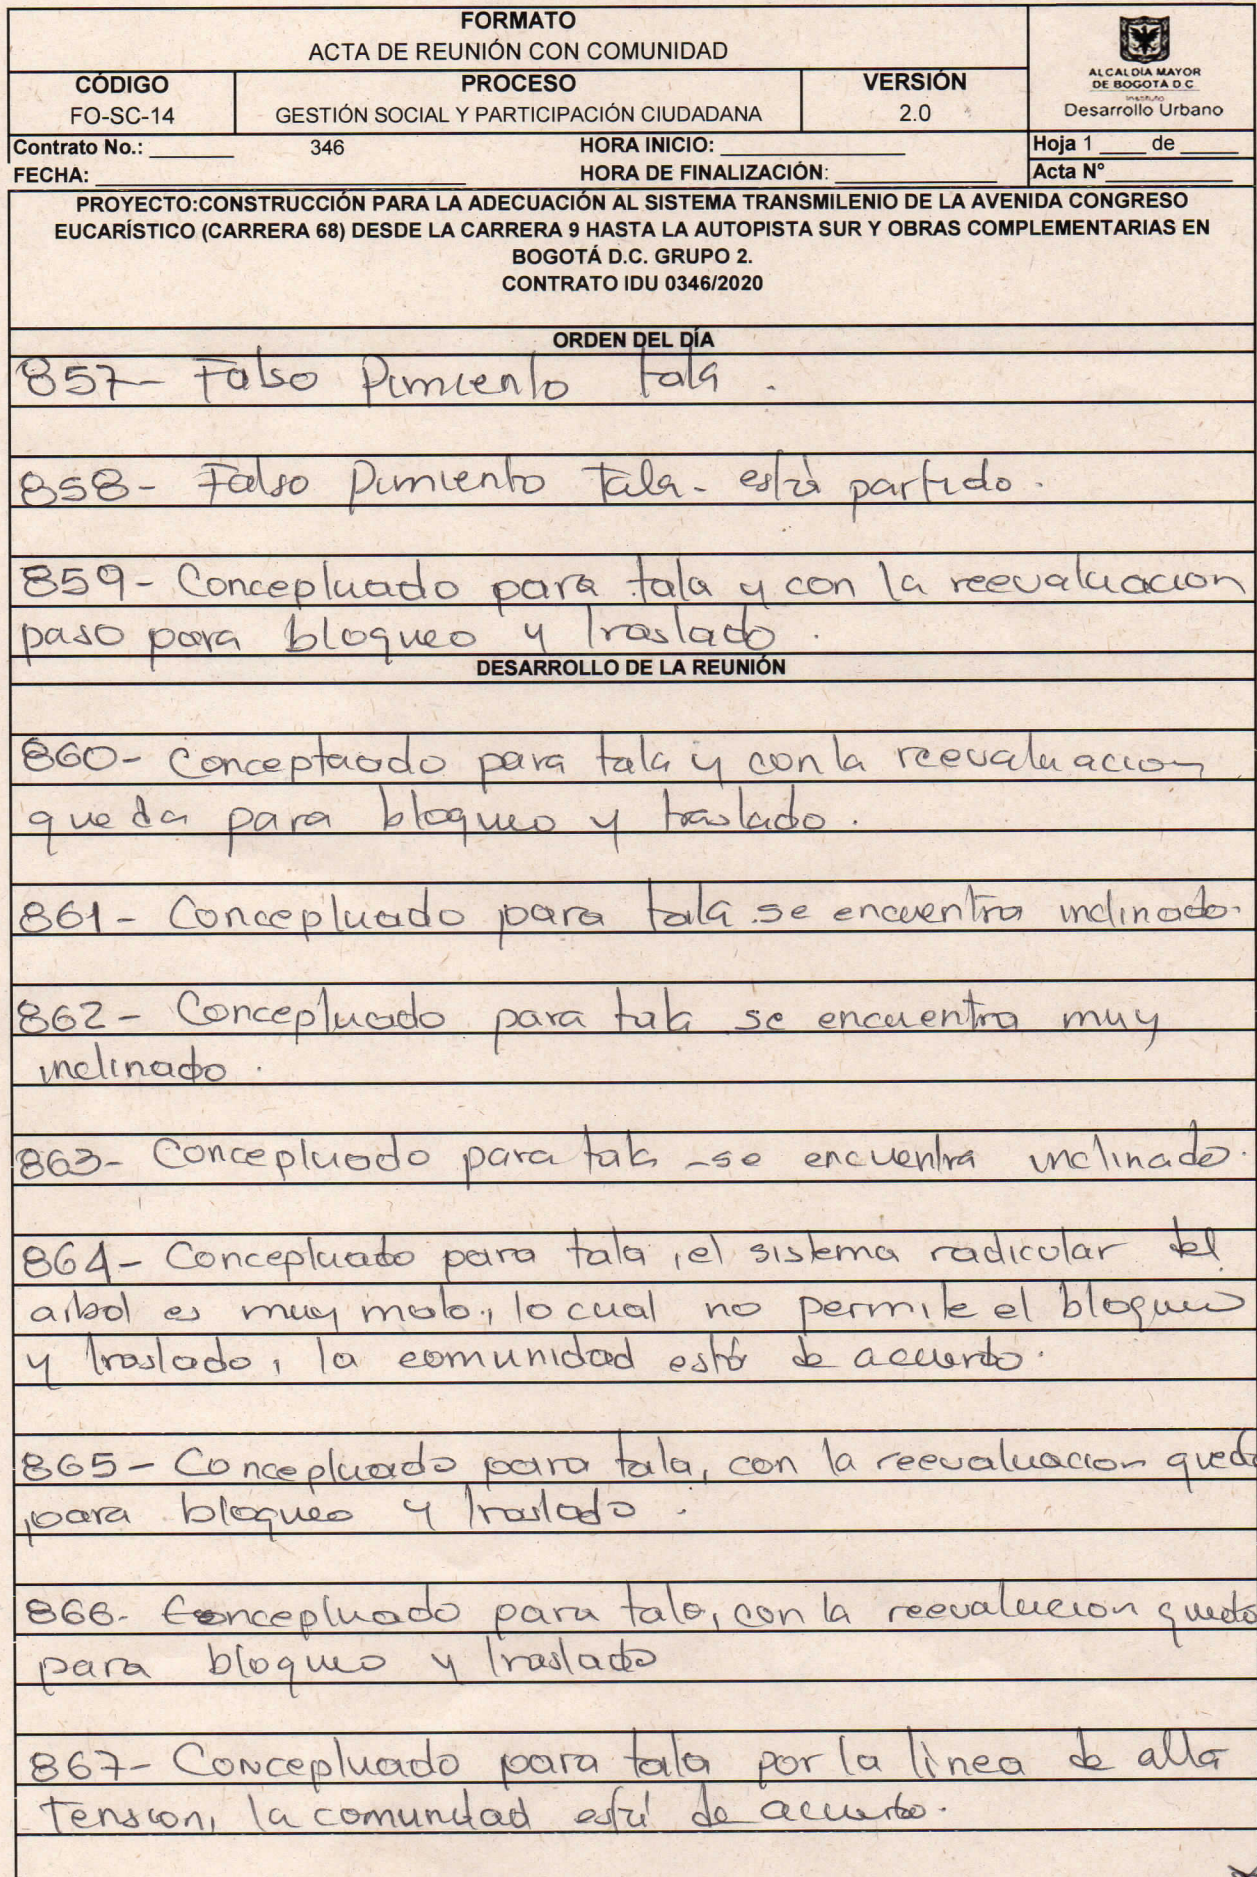 FORMATO
ACTA DE REUNIÓN CON COMUNIDAD
CÓDIGO
FO-SC-14
PROCESO
GESTIÓN SOCIAL Y PARTICIPACIÓN CIUDADANA
VERSIÓN
2.0
ALCALDIA MAYOR
DE BOGOTÁ D C
Instituto
Desarrollo Urbano
Contrato No.: 346 HORA INICIO:
Hoja 1 de
FECHA: HORA DE FINALIZACIÓN:
Acta N°
PROYECTO:CONSTRUCCIÓN PARA LA ADECUACIÓN AL SISTEMA TRANSMILENIO DE LA AVENIDA CONGRESO
EUCARÍSTICO (CARRERA 68) DESDE LA CARRERA 9 HASTA LA AUTOPISTA SUR Y OBRAS COMPLEMENTARIAS EN
BOGOTÁ D.C. GRUPO 2.
CONTRATO IDU 0346/2020
ORDEN DEL DÍA
857- Falso Pimiento tala.
858- Falso Pimiento Tala- está partido.
859- Conceptuado para tala y con la reevaluacion
paso para bloqueo y traslado.
DESARROLLO DE LA REUNIÓN
860- Conceptuado para tala y con la reevaluacion
queda para bloqueo y traslado.
861- Conceptuado para tala se encuentra inclinado.
862- Conceptuado para tala se encuentra muy
inclinado.
863- Conceptuado para tala -se encuentra inclinado.
864- Conceptuado para tala, el sistema radicular del
arbol es muy malo, lo cual no permite el bloqueo
y traslado, la comunidad está de acuerdo.
865- Conceptuado para tala, con la reevaluacion queda
para bloqueo y traslado.
866- Conceptuado para tala, con la reevalucion queda
para bloqueo y traslado
867- Conceptuado para tala por la linea de alta
Tension, la comunidad está de acuerdo.